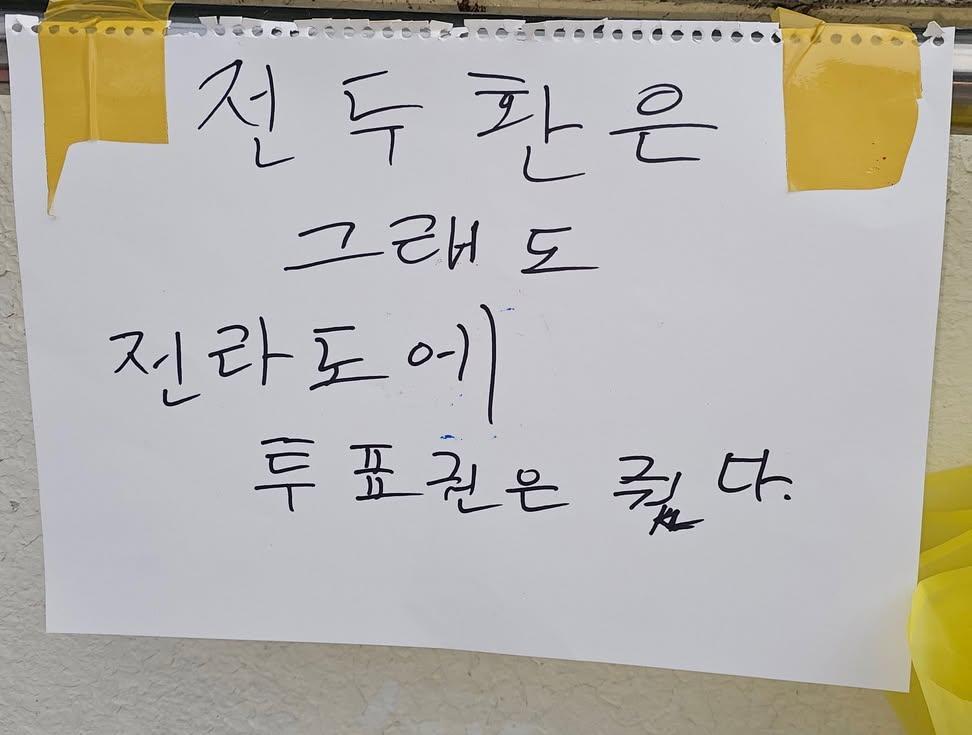 전두환은
그래도
전라도에
투표권은 줬다.